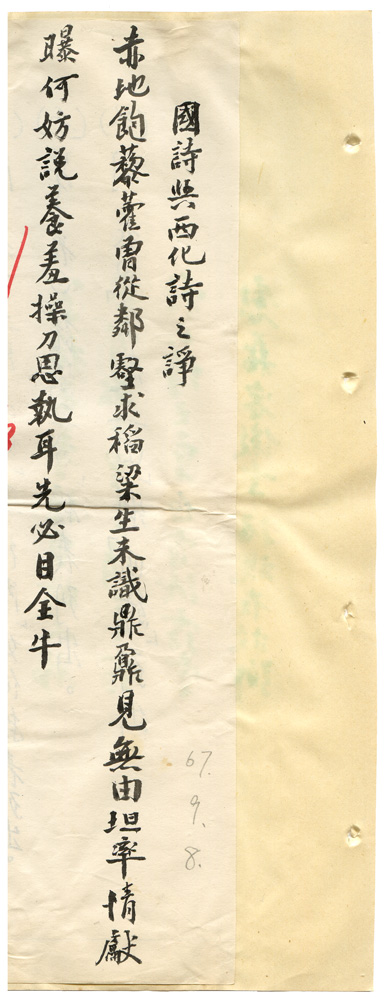 國詩與西化詩之諍
赤地飽藜藿胃從鄰壑求稻粱生未識鼎鼐見無由坦率情獻
曝何妨說養羞操刀思執耳先必目金牛
67.
9.
8.